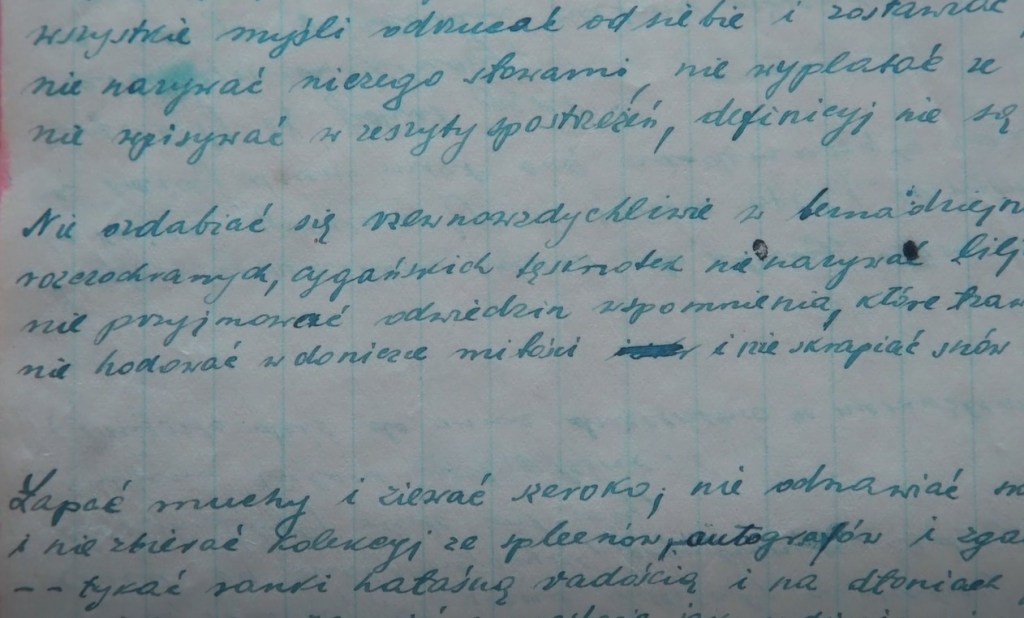 wszystkie myśli odrzucać od siebie i zostawiać
nie nazywać niczego słowami, nie wyplatać ze
nie wpisywać w zeszyty spostrzeżeń, definicyj nie są
Nie ozdabiać się rzewnowzdychliwie w beznadziejn
rozczochranych, cygańskich tęsknotek nie nazywać lilj
nie przyjmować odwiedzin wspomnienia, które traw
nie hodować w doniczce miłości i nie skrapiać snów
Łapać muchy i ziewać szeroko; nie odnawiać
i nie zbierać kolekcyj ze spleenów, autografów i zga
-- tykać ranki hałaśną radością i na dłoniach